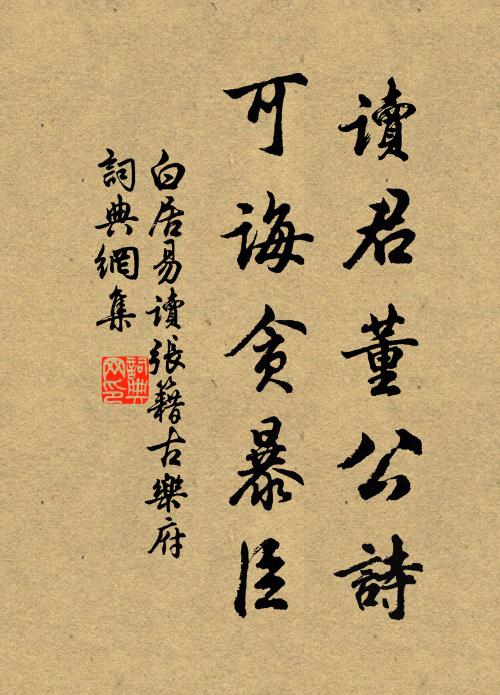 讀君董公詩
可誨貪暴臣
白居易讀張籍古樂府
詞典網集
詞典网印